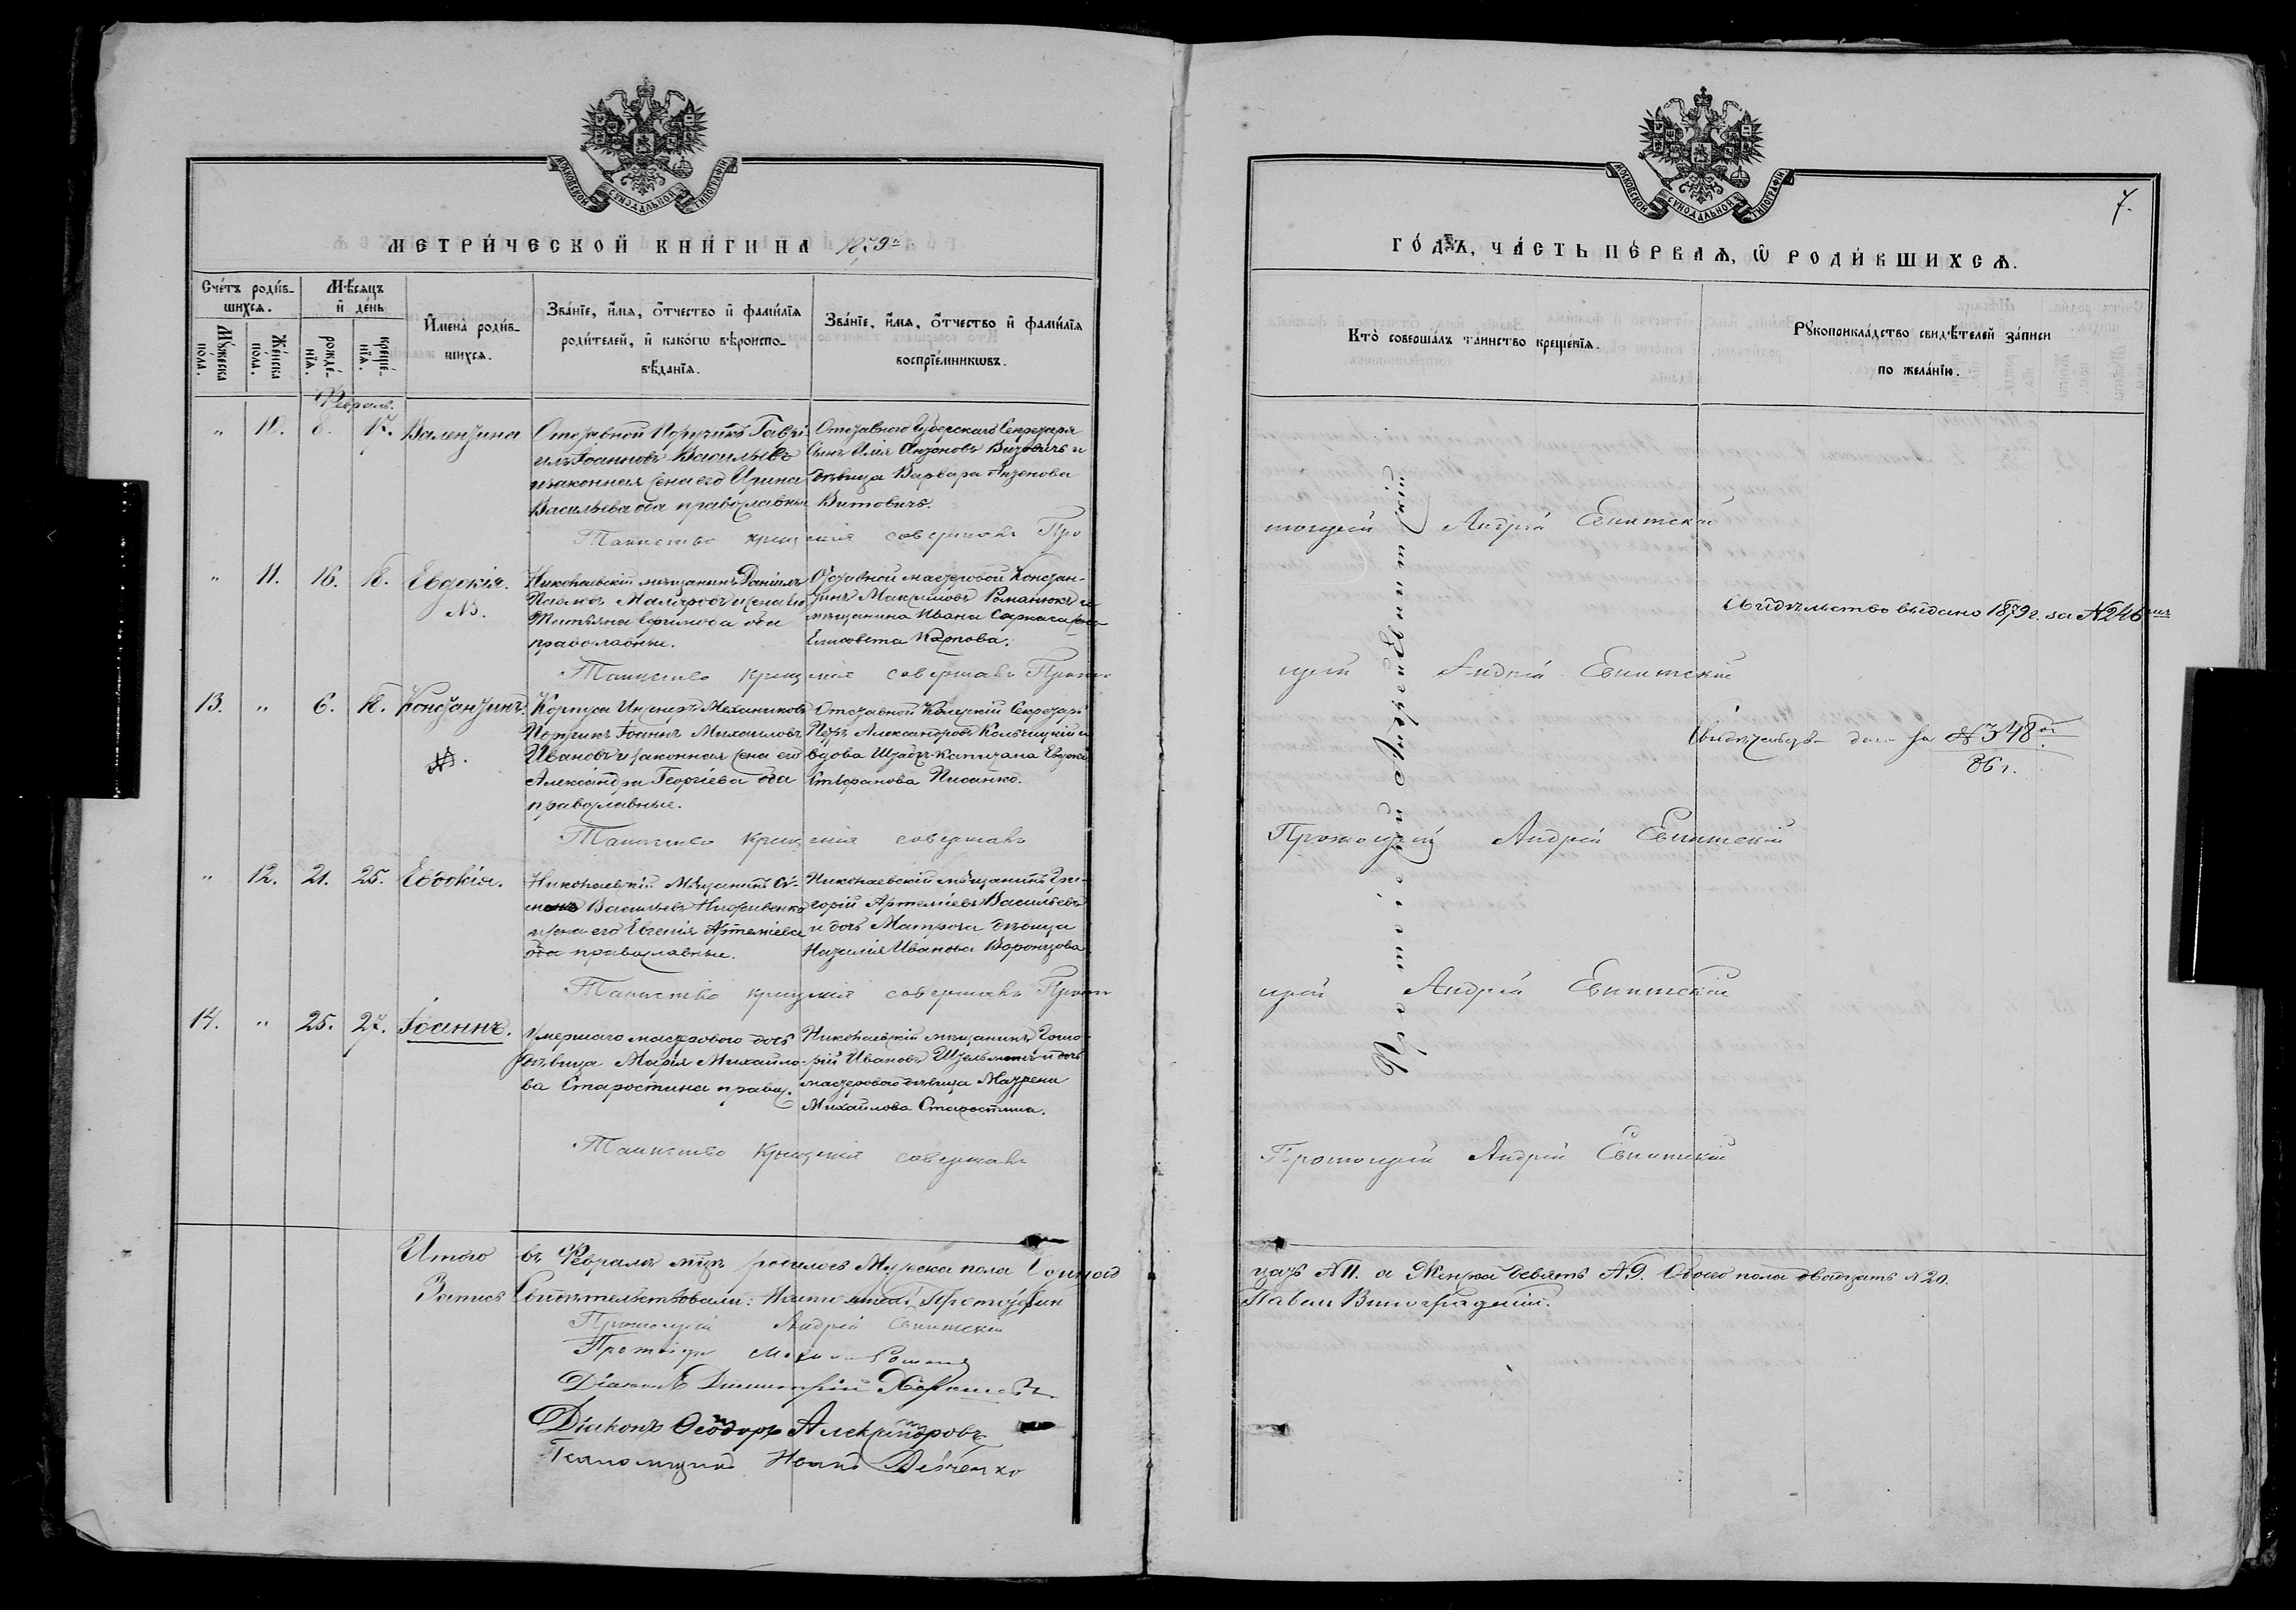 МОСКОВСКОЙ СУНОДАЛЬНОЙ ТИПОГРАФІИ
МЕТРИ́ЧЕСКОЙ КНИ́ГИ НА 1879й
Сче́тъ роди́в-
шихсѧ.
Мꙋ́жеска
пола.
Же́нска
пола.
Мѣ́сѧцъ
и҆ де́нь
рожде́-
нїѧ.
креще́-
нїѧ.
И҆мена̀ роди́в-
шихсѧ.
Зва́нїе, и҆́мѧ, ѻ҆́тчество и҆ фами́лїѧ
роди́телей, и҆ како́гѡ вѣроиспо-
вѣ́данїѧ.
Зва́нїе, и҆́мѧ, ѻ҆́тчество и҆ фами́лїѧ
воспрїе́мникѡвъ.
Февраль.
" 10. 8. 17. Валентина
Отставной Поручикъ Гаврі-
илъ Іоанновъ Васильевъ
и законная жена его Ирина
Васильева оба православные
Отставного Губернскаго Секретаря
сынъ Илія Антоновъ Витовичъ и
дѣвица Варвара Антонова
Витовичъ.
Таинство крещенія совершалъ Про
" 11. 16. 18. Евдокія.
NB.
Николаевскій мѣщанинъ Даніилъ
Павловъ Маляровъ и жена его
Татьяна Ефимова оба
православные.
Отставной мастеровой Констан-
тинъ Максимовъ Романюкъ и
мѣщанина Ивана жена
Елисовета Карпова.
Таинство крещенія совершалъ Прото
13. " 6. 18. Константинъ.
NB.
Корпуса Инженеръ Механиковъ
Поручикъ Іоаннъ Михаиловъ
Ивановъ и законная жена его
Александра Георгіева оба
православные.
Отставной Колежскій Секретарь
Петръ Александровъ и
вдова Штабсъ-Капитана Евдокія
Стефанова Писанко.
Таинство крещенія совершалъ
" 12. 21. 25. Евдокія.
Николаевскій Мѣщанинъ Си-
монъ Васильевъ
и жена его Евгенія Артеміева
оба православные.
Николаевскій мѣщанинъ Гри-
горій Артеміевъ Васильевъ
и дочь Матроса дѣвица
Наталія Иванова Воронцова
Таинство крещенія совершалъ Прото
14. " 25. 27. Іоаннъ.
Умершаго мастерового дочь
дѣвица Марія Михайло-
ва Старостина правос.
Николаевскій мѣщанинъ Григо-
рій Ивановъ и дочь
мастерового дѣвица Матрена
Михайлова Старостина.
Таинство крещенія совершалъ
Итого въ Февралѣ мцѣ родилось Мужеска пола Одиннад
Запись Свидѣтельствовали:
Протоіерей Андрей
Протоіерей
Діаконъ Димитрій
Діаконъ Ѳеодоръ Александровъ
Псаломщикъ Иванъ
МОСКОВСКОЙ СУНОДАЛЬНОЙ ТИПОГРАФІИ
7.
ГО́ДЪ, ЧА́СТЬ ПЕ́РВАѦ, Ѡ҆ РОДИ́ВШИХСѦ.
Кто̀ соверша́лъ та́инство креще́нїѧ.
Рꙋкоприкла́дство свидѣ́телей за́писи
по жела́нїю.
тоіерей Андрей
Свидѣтельство выдано 1879 г. за № 246
іерей Андрей
Свидѣтельство дано за № 348
86 г.
Протоіерей Андрей
іерей Андрей
Протоіерей Андрей
Протоіерей Андрей
цать № 11. а Женска девять № 9. Обоего пола двадцать № 20.
Павелъ Виноградскій.